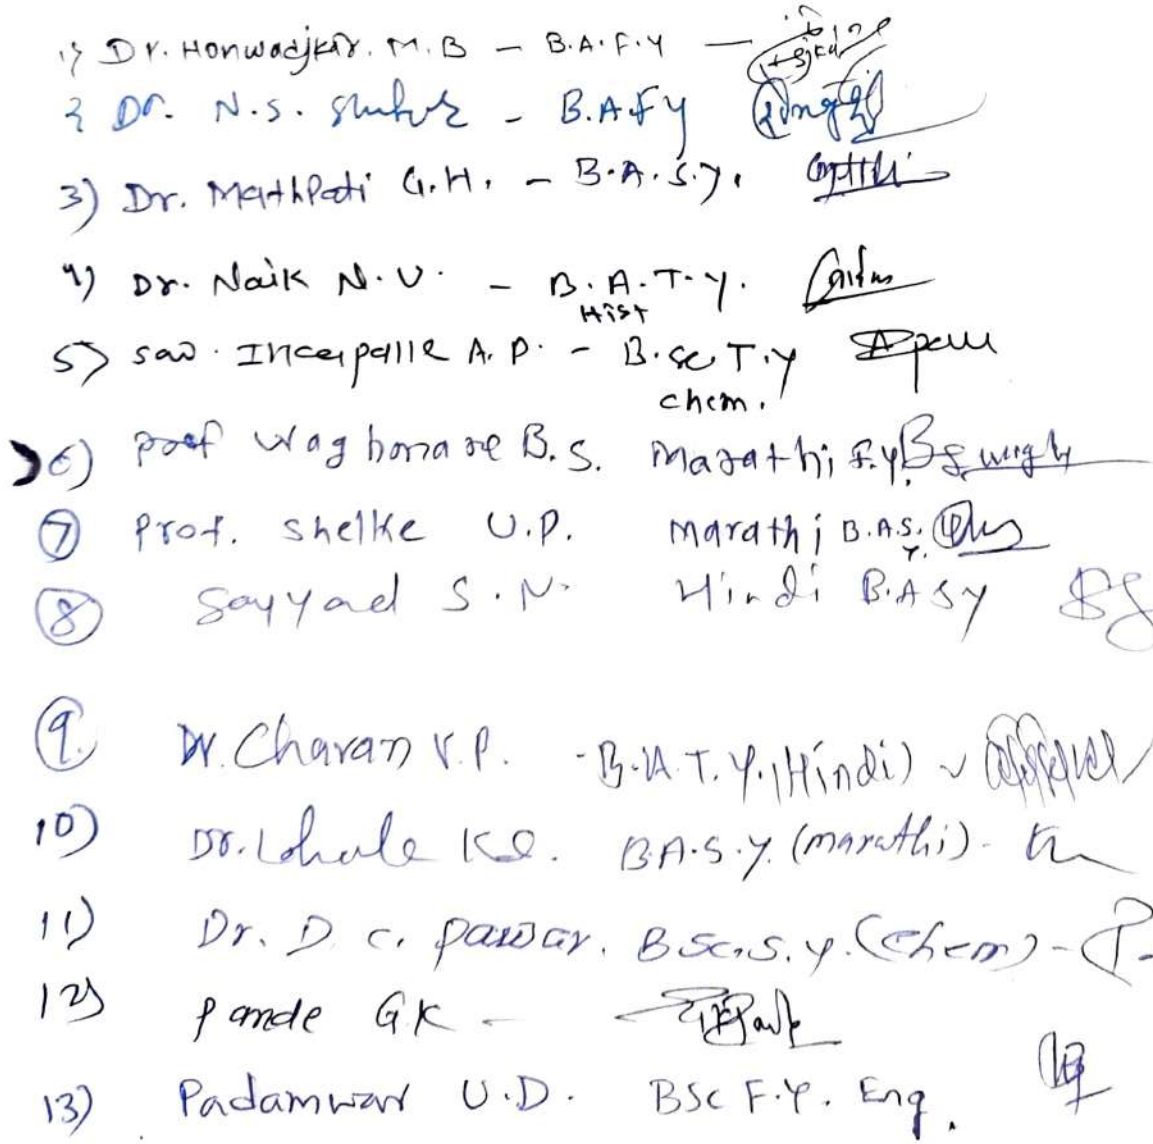 1) Dr. Honwadjkar. M.B - B.A.F.Y -
2 Dr. N.S. - B.A.F.Y
3) Dr. Mathpati G.H. - B.A.S.Y.
4) Dr. Naik N.U. - B.A.T.Y.
Hist
5) sow. A.P. - B.sc T.y
chem.
6) prof Waghmare B.S. Marathi F.y.
7 Prof. Shelke U.P. Marathi B.A.S.
Y.
8 Sayyad S.N. Hindi B.A S y
9. Dr. Chavan V.P. - B.A.T.Y. (Hindi)
10) Dr. Lohale B.A.S.Y. (marathi) -
11) Dr. D. C. pawar. B Sc. S.y. (Chem) -
12) pande G.K -
13) Padamwar U.D. BSc F.Y. Eng.